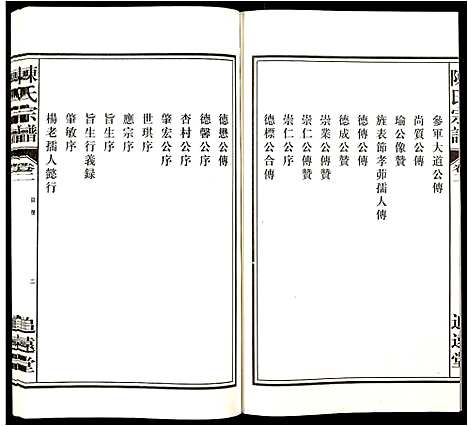 陳氏宗譜
卷二
追遠堂
參軍大道公傳
尚質公傳
瑜公像贊
旌表節孝茆孺人傳
德傳公贊
德成公贊
崇業公傳贊
崇仁公傳贊
崇仁公序
德標公合傳
德懋公傳
德馨公序
杏村公序
肇宏公序
世琪序
應宗序
旨生序
旨生行義録
肇敏序
楊老孺人懿行
陳氏宗譜
卷二
二
追遠堂